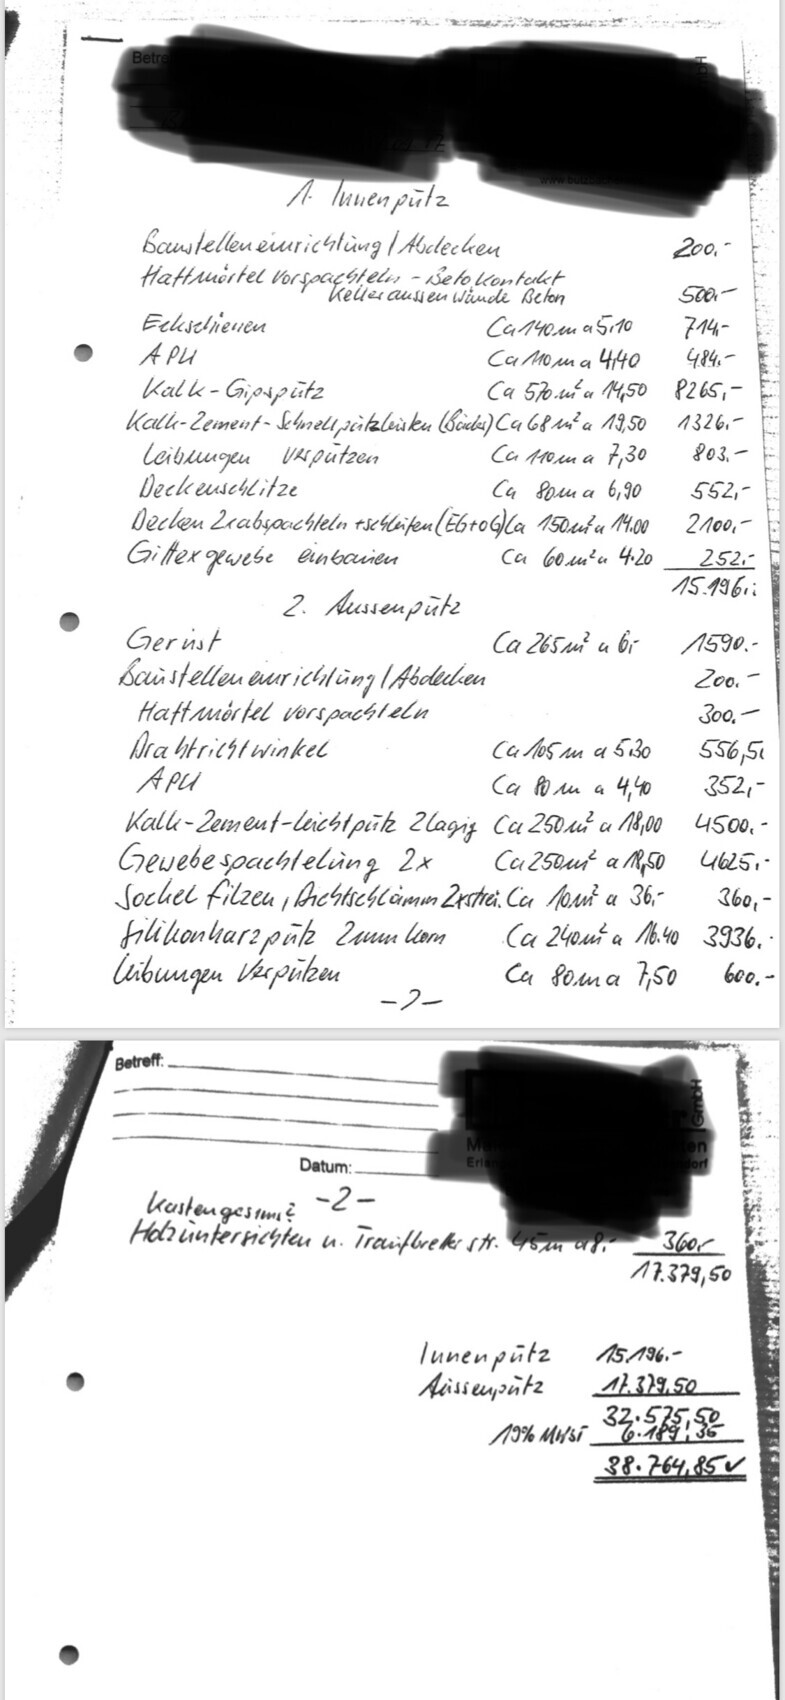 Betre
1. Innenputz
Baustelleneinrichtung / Abdecken 200.-
Haftmörtel vorspachteln - Betokontakt
Kelleraussenwände Beton 500.-
Eckschienen Ca 140 m a 5,10 714,-
APU Ca 110 m a 4,40 484.-
Kalk-Gipsputz Ca 570 m² a 14,50 8265,-
Kalk-Zement-Schnellputzleisten Ca 68 m² a 19,50 1326.-
Leibungen verputzen Ca 110 m a 7,30 803.-
Deckenschlitze Ca 80 m a 6,90 552,-
Decken 2x abspachteln + schleifen (EG+OG) Ca 150 m² a 14.00 2100,-
Gittexgewebe einbauen Ca 60 m² a 4.20 252.-
15.196.-
2. Aussenputz
Gerüst Ca 265 m² a 6,- 1590.-
Baustelleneinrichtung / Abdecken 200.-
Haftmörtel vorspachteln 300.-
Drahtrichtwinkel Ca 105 m a 5.30 556,5
APU Ca 80 m a 4,40 352,-
Kalk-Zement-Leichtputz 2lagig Ca 250 m² a 18,00 4500.-
Gewebespachtelung 2x Ca 250 m² a 18,50 4625,-
Sockel filzen, Dichtschlämm 2xstrei. Ca 10 m² a 36,- 360,-
Silikonharzputz 2mm Korn Ca 240 m² a 16.40 3936.-
Leibungen verputzen Ca 80 m a 7,50 600.-
-2-
Betreff:
GmbH
Datum:
-2-
Kastengesims?
Holzuntersichten u. Traufbretter str. 45 m a 8.- 360.-
17.379,50
Innenputz 15.196.-
Aussenputz 17.379.50
32.575,50
19% MWST 6.189,35
38.764,85 ✓